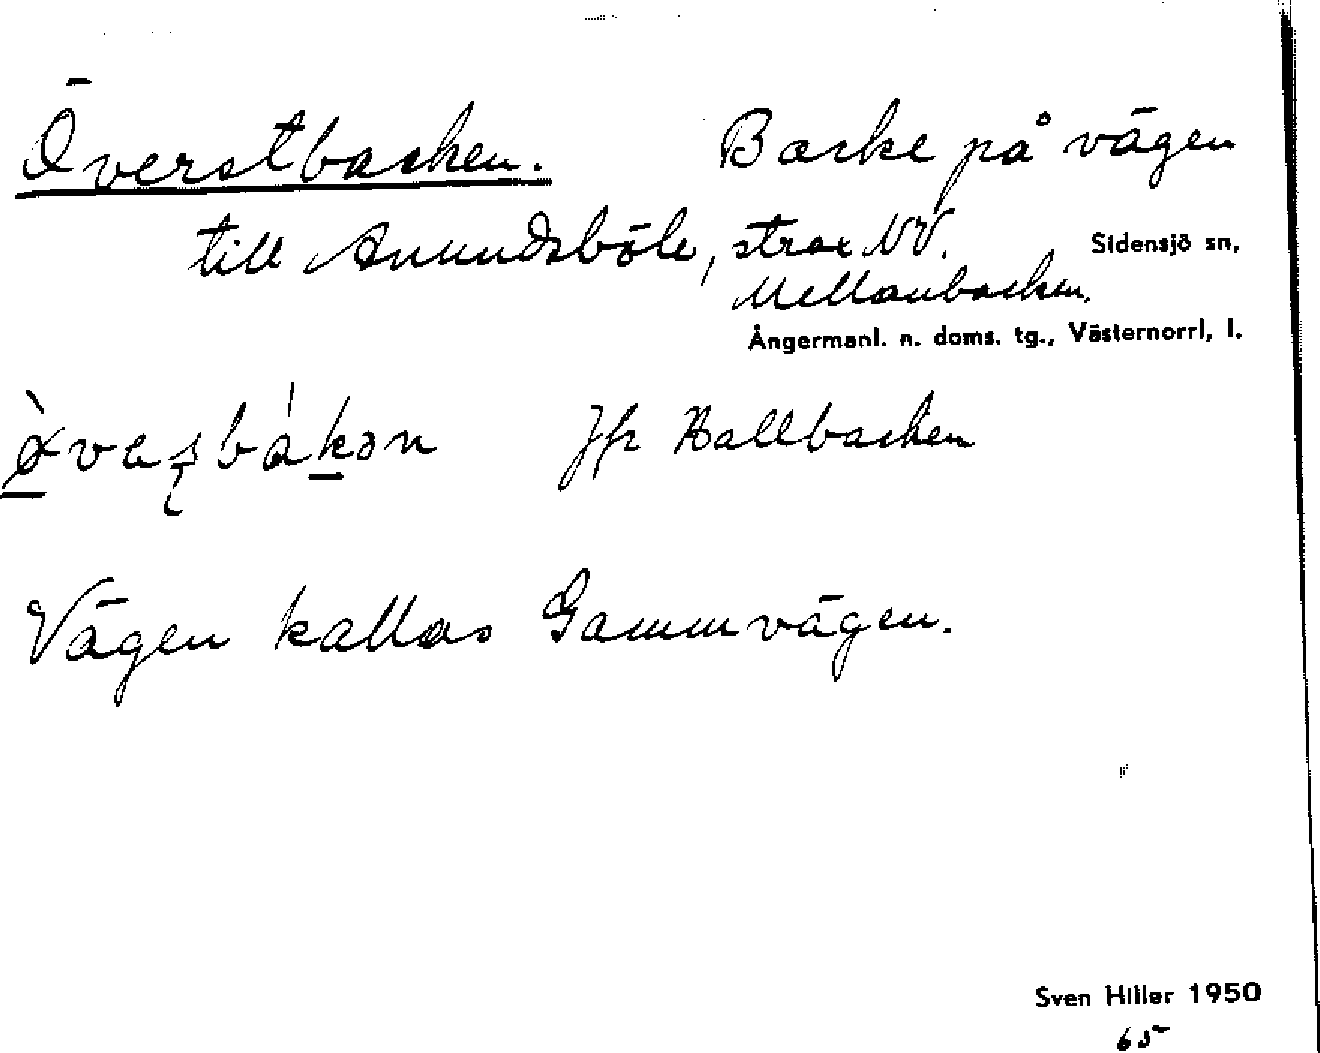 Överstbacken. Backe på vägen
till Anundsböle, strax NV. Sidensjö sn,
Mellanbacken.
Ångermanl. n. doms. tg., Västernorrl, l.
Jfr Hallbacken
Vägen kallas Gammvägen.
Sven Hiller 1950
65